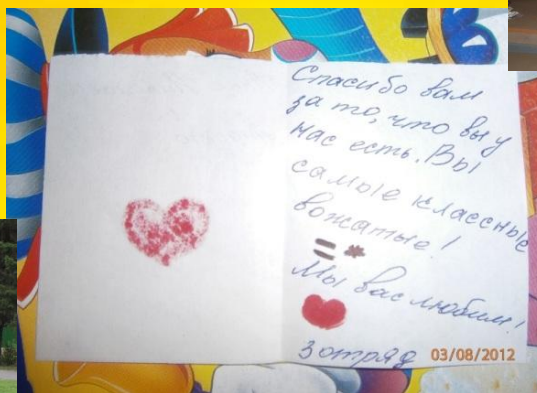 Спасибо вам
за то, что вы у
нас есть. Вы
самые классные
вожатые!
=*
Мы вас любим!
3 отряд
03/08/2012